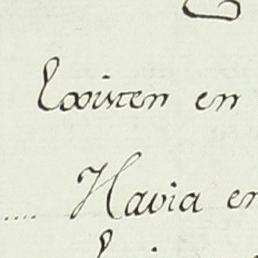 Existen en
.... Havia en